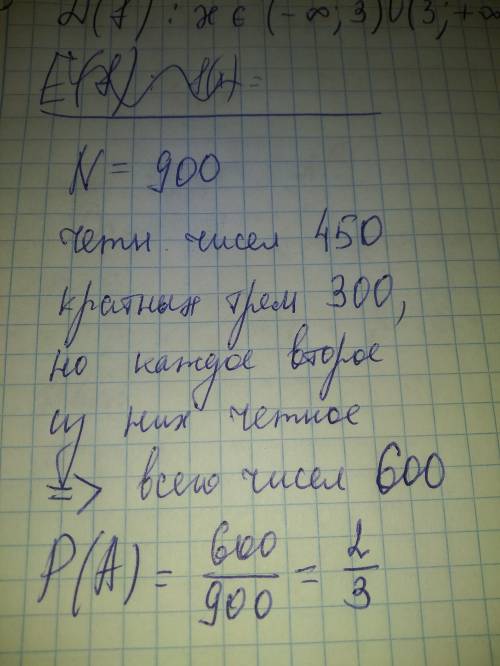 D(f): x ∈ (-∞; 3)∪(3; +∞
E(f)
N = 900
четн. чисел 450
кратных трем 300,
но каждое второе
из них четное
=> всего чисел 600
P(A) = 600/900 = 2/3